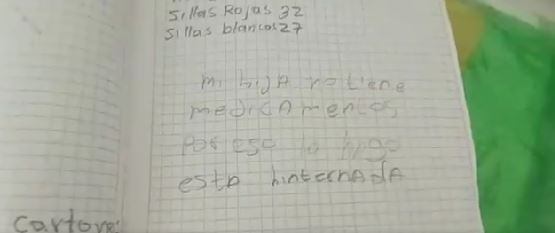 Sillas Rojas 32
Sillas blancas 27
mi hijA no tiene
medicAmentos
Por eso lo higo
esta hinternAdA